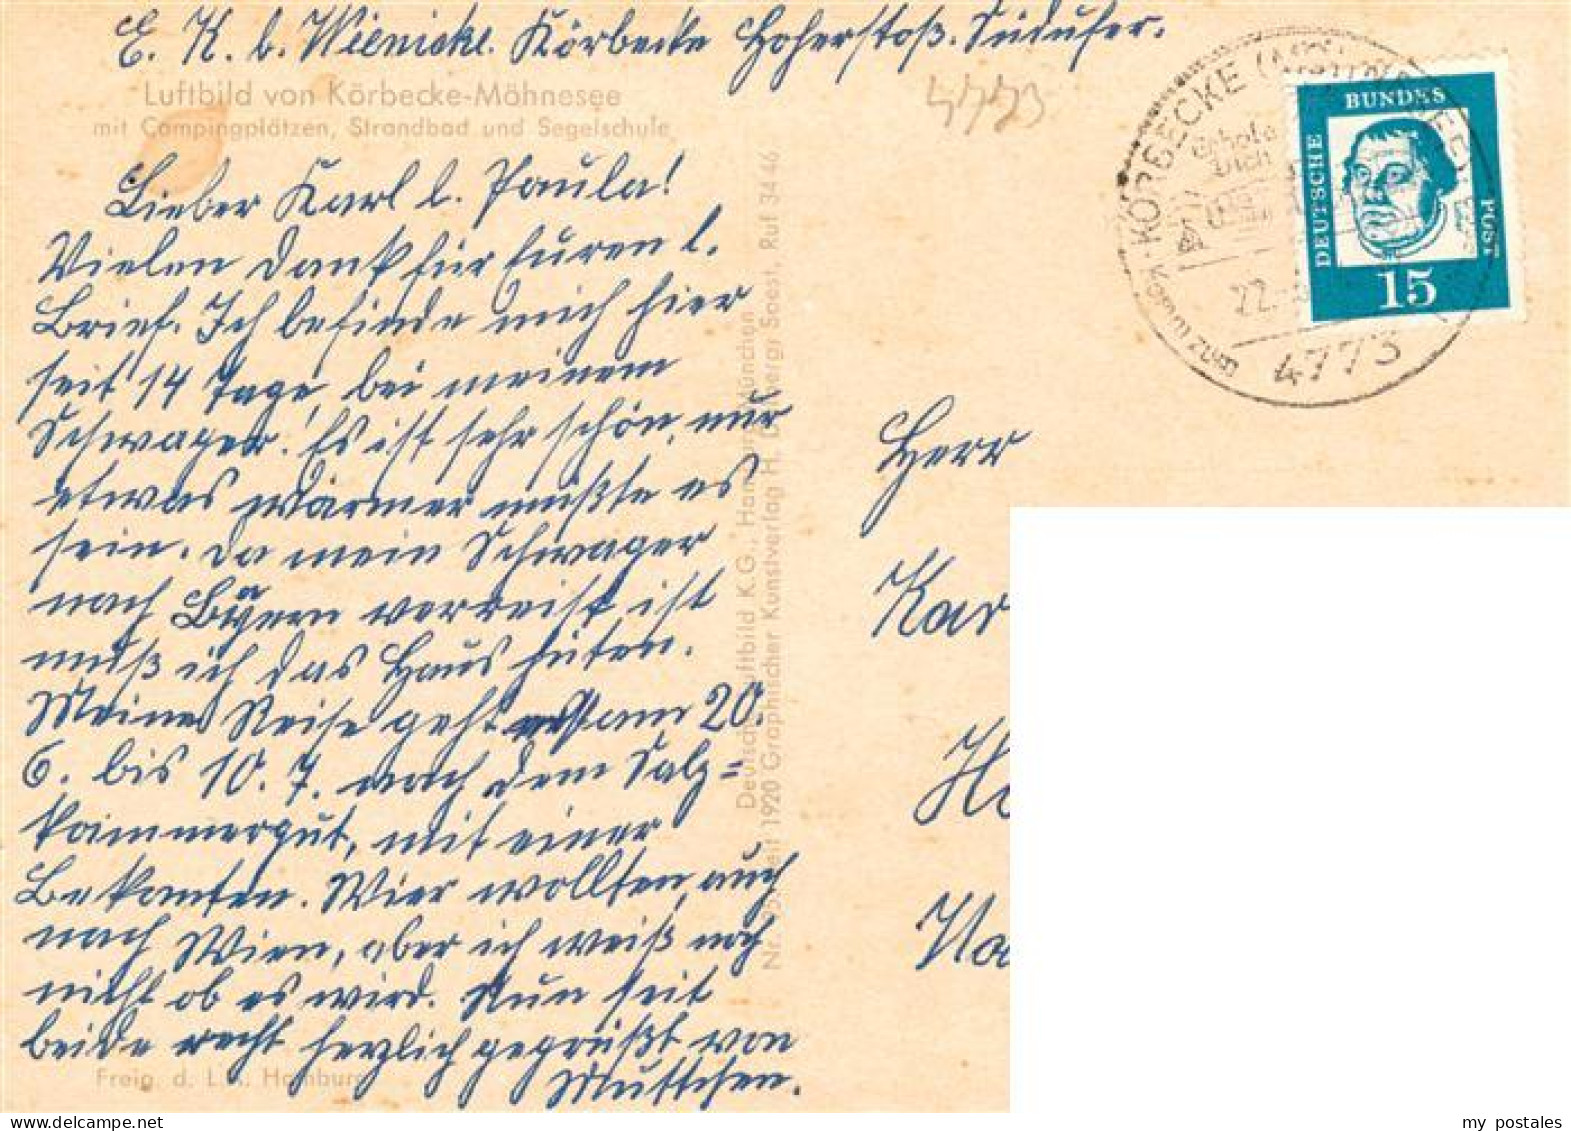 E. K. b. Wienicke. Körbecke Hoherstoß. Südufer.
Luftbild von Körbecke-Möhnesee
mit Campingplätzen, Strandbad und Segelschule
4773
Lieber Karl l. Paula!
Vielen Dank für Euren l.
Brief. Ich befinde mich hier
seit 14 Tage, bei meinem
Schwager. Es ist sehr schön, nur
etwas wärmer müßte es
sein. Da mein Schwager
nach Bayern verreist ist
muß ich das Haus hüten.
Meine Reise geht am 20.
6. bis 10. 7. nach dem Salz=
kammergut, mit einer
Bekannten. Wier wollten auch
nach Wien, aber ich weiß noch
nicht ob es wird. Nun seit
beide recht herzlich gegrüßt von
Muttchen.
Freig. d. L.A. Hamburg
Luftbild K.G., München
seit 1920 Graphischer Kunstverlag H. Soest, Ruf 3446
KÖRBECKE
Erhole
Dich
22.
4773
DEUTSCHE
BUNDES
POST
15
Herr
Kar
Ho